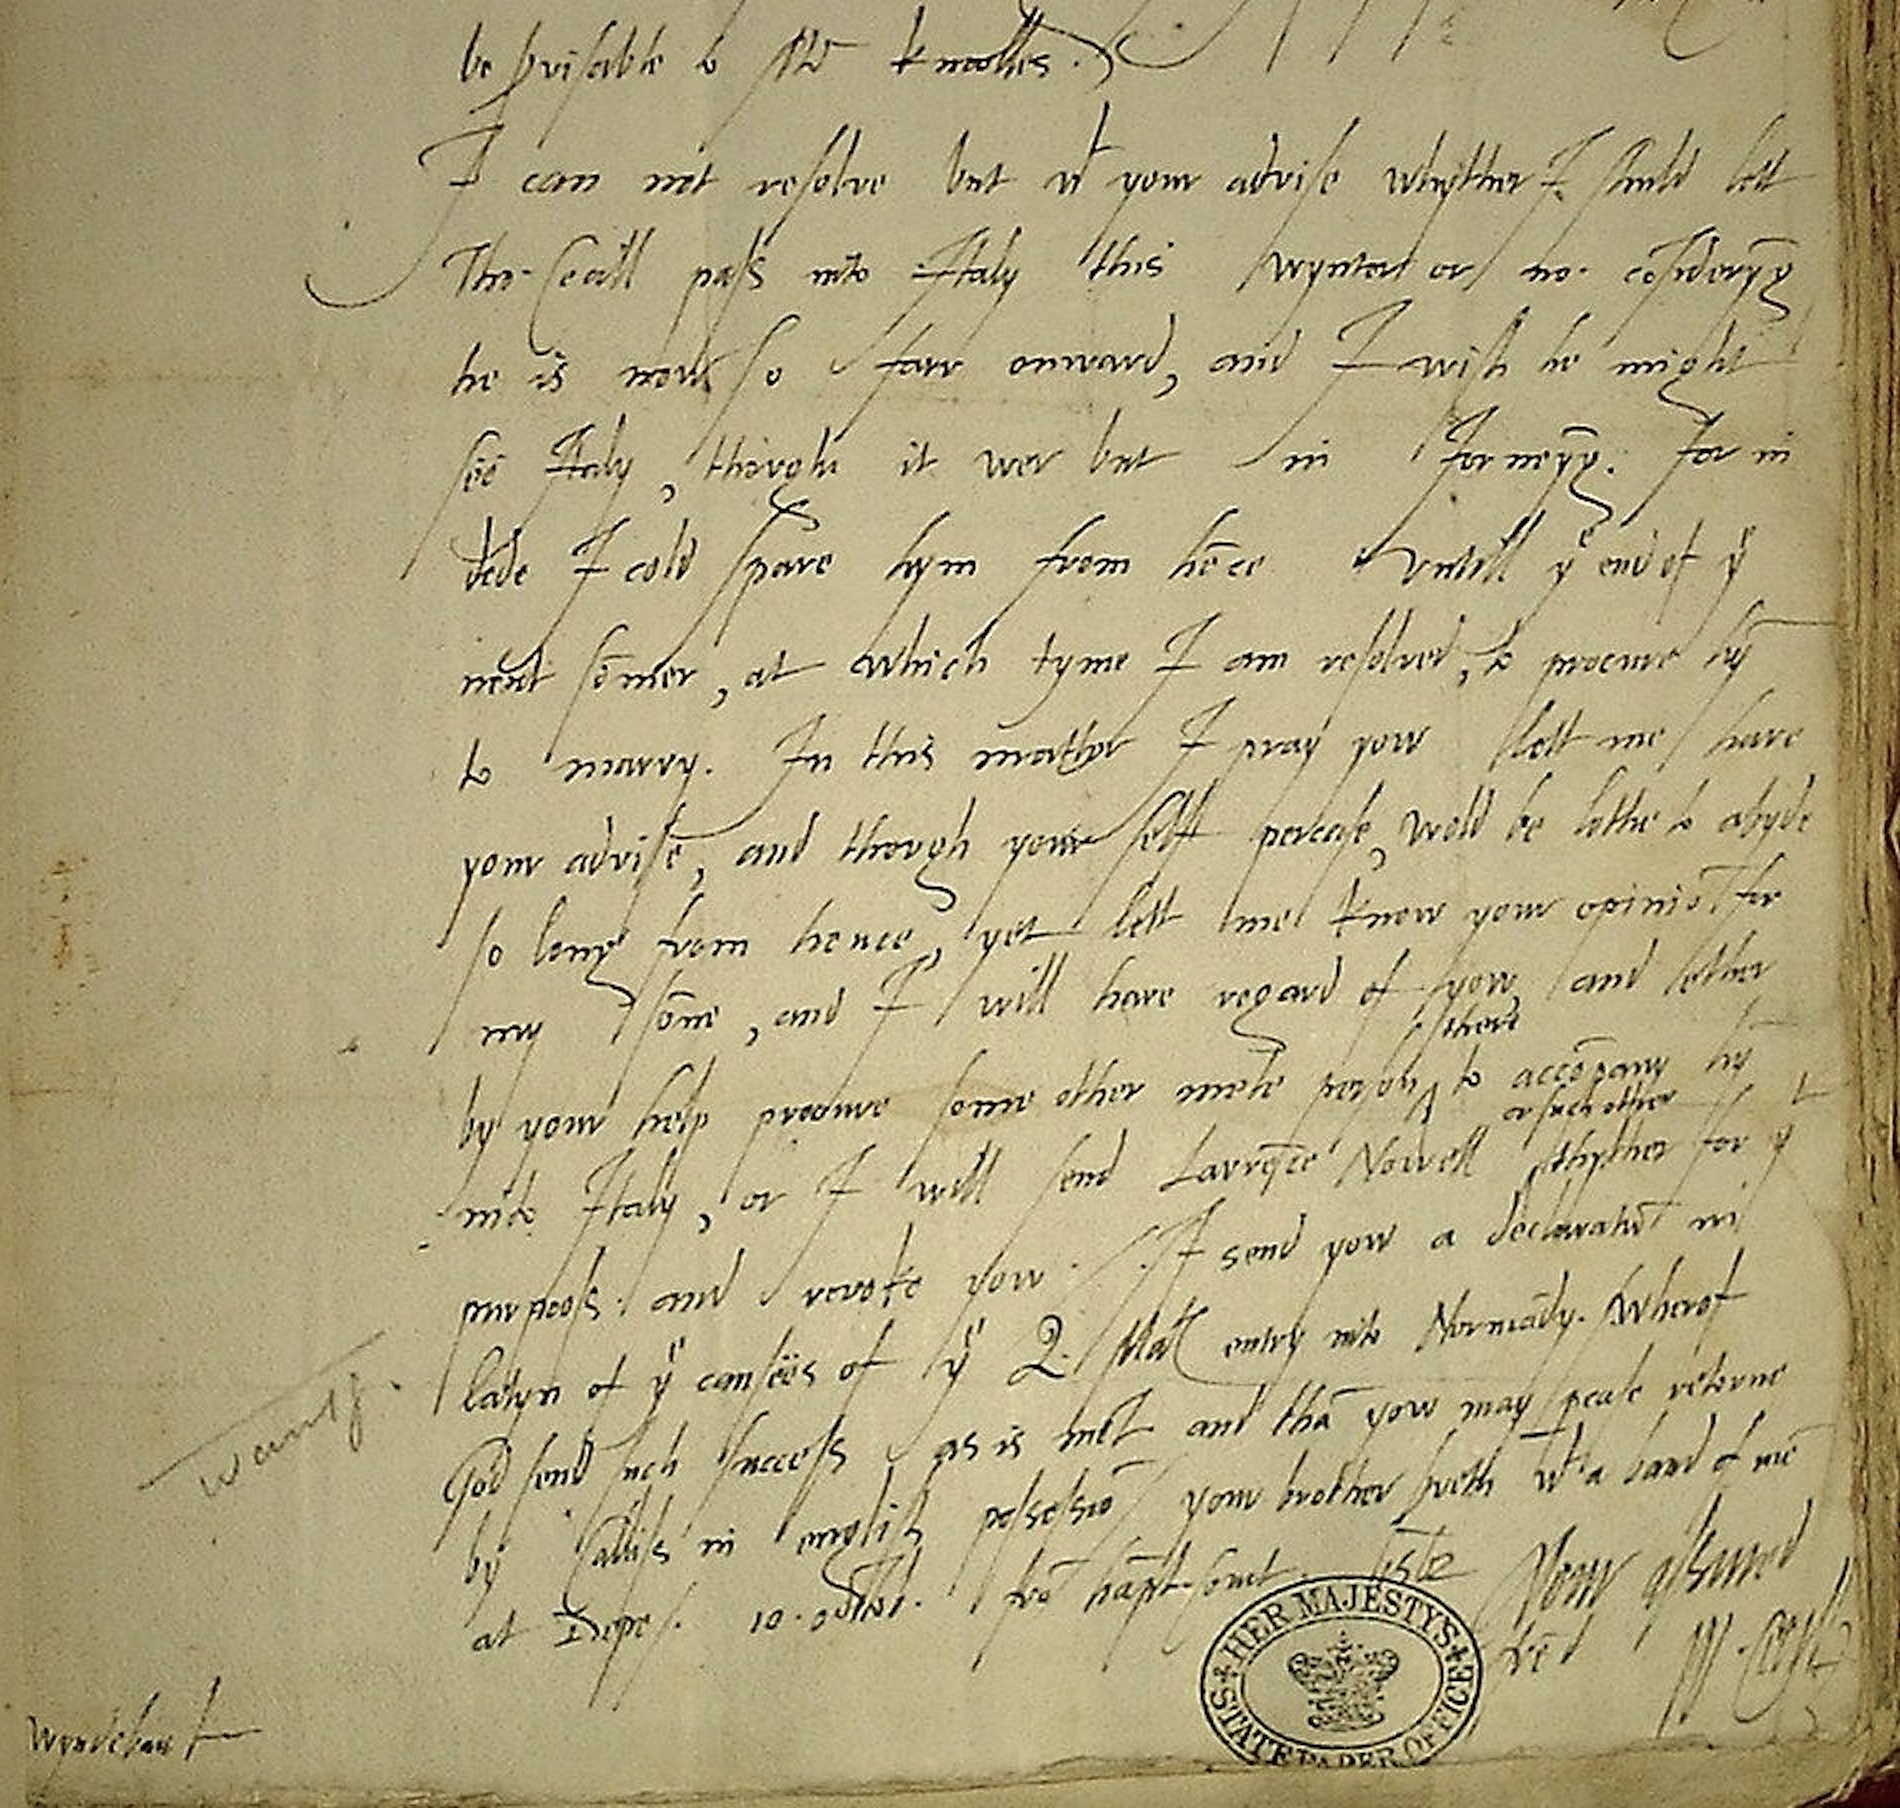 be srisable to Mr Knolles.
I can not resolve but wt your advise whyther I shuld lett
Tho. Cecill pass into Italy this wynter or no. cōsideryng
he is now so farr onward, and I wish he might
see Italy, though it wer but in Iorneyg. For in
dede I cold spare hym from hēce untill ye end of ye
next sōmer, at which tyme I am resolved, to procure hȳ
to marry. In this matter I pray yow lett me have
your advise, and though your self percase, wold be lothe to abyde
so long from hence, yet lett me know your opiniō for
my sōne, and I will have regard of yow, and ether
by your help procure some other mete person there to accōpany hȳ
into Italy, or I will send Larrēce Nowell or such other thyther for yt
purpoos. and revoke yow. I send yow a declaratiō in
latyn of ye causees of ye Q. Maty entry into Normādy. Wherof
God send such success as is mete and thā yow may peale retorne
by Calliss in english possessiō your brother hveth wt a band of mē
at Diepe. 10. octobr. frō hāpt. court. 1562
Your assured
frēd W. Cecill
Wyndebank
HER MAJESTYS
STATE PAPER OFFICE